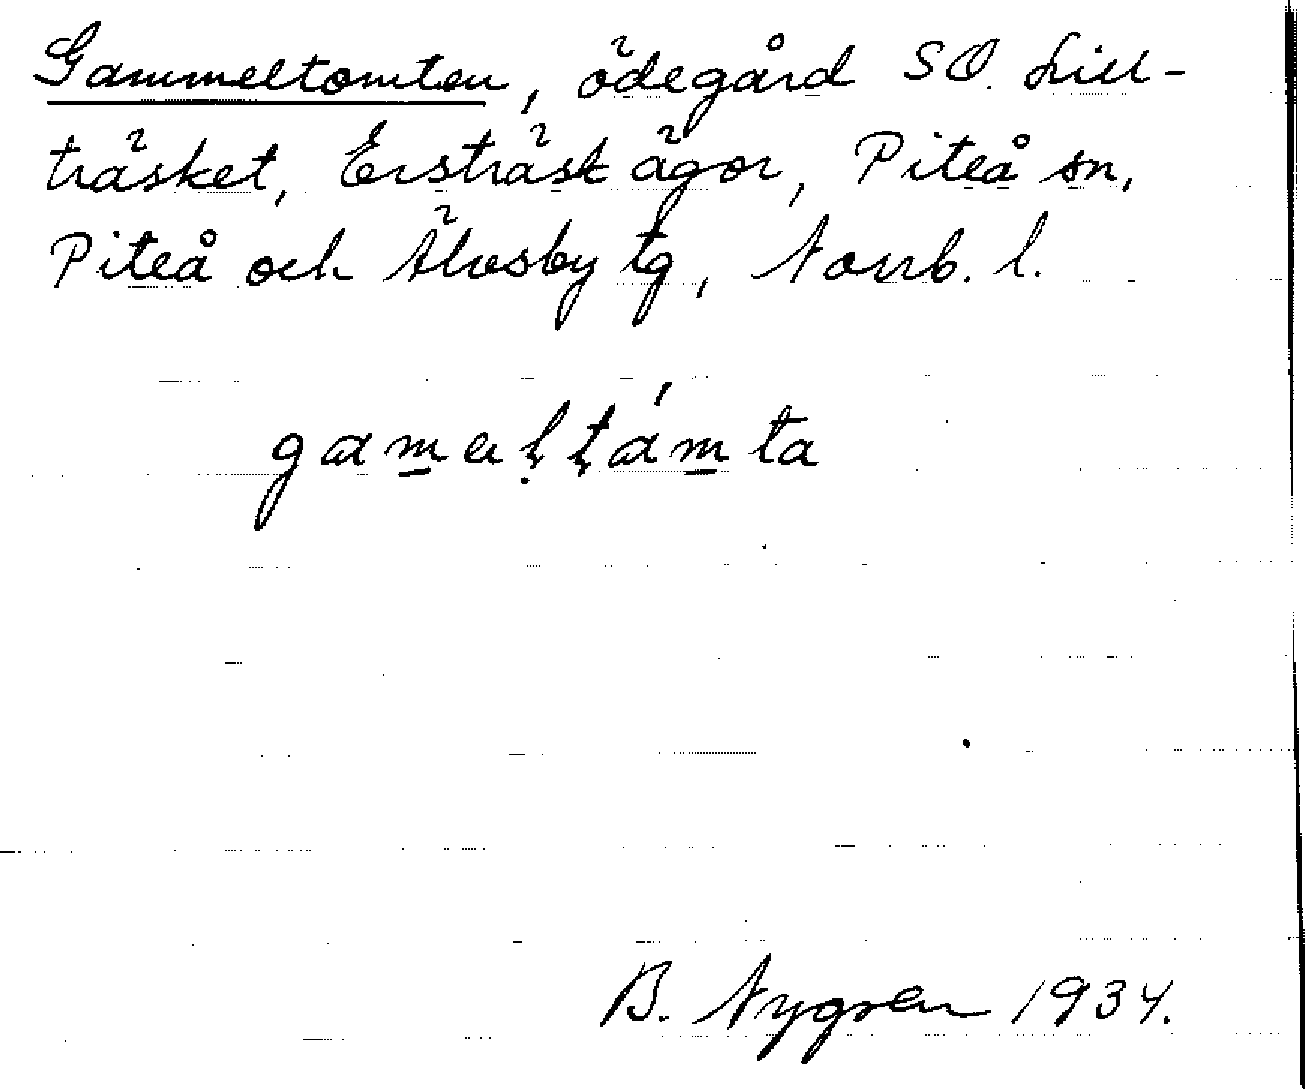 Gammeltomten, ödegård SO. Lill-
träsket, Ersträsk ägor, Piteå sn,
Piteå och Älvsby tg, Norrb. l.
B. Nygren 1934.